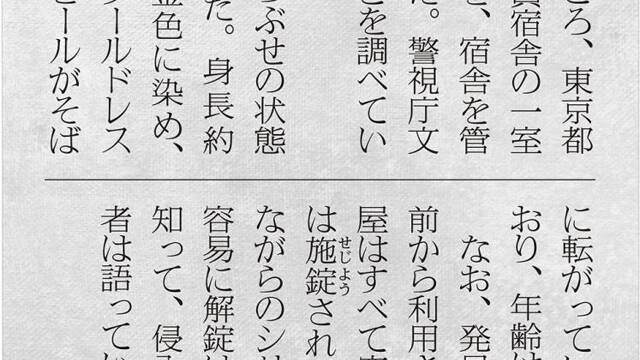 ろ、東京都
員宿舎の一室
、宿舎を管
た。警視庁文
を調べてい
ぶせの状態
た。身長約
金色に染め、
ールドレス
ールがそば
に転がって
おり、年齢
なお、発
前から利用
屋はすべて
は施錠され
せじよう
ながらのシリ
容易に解錠
知って、侵
者は語って